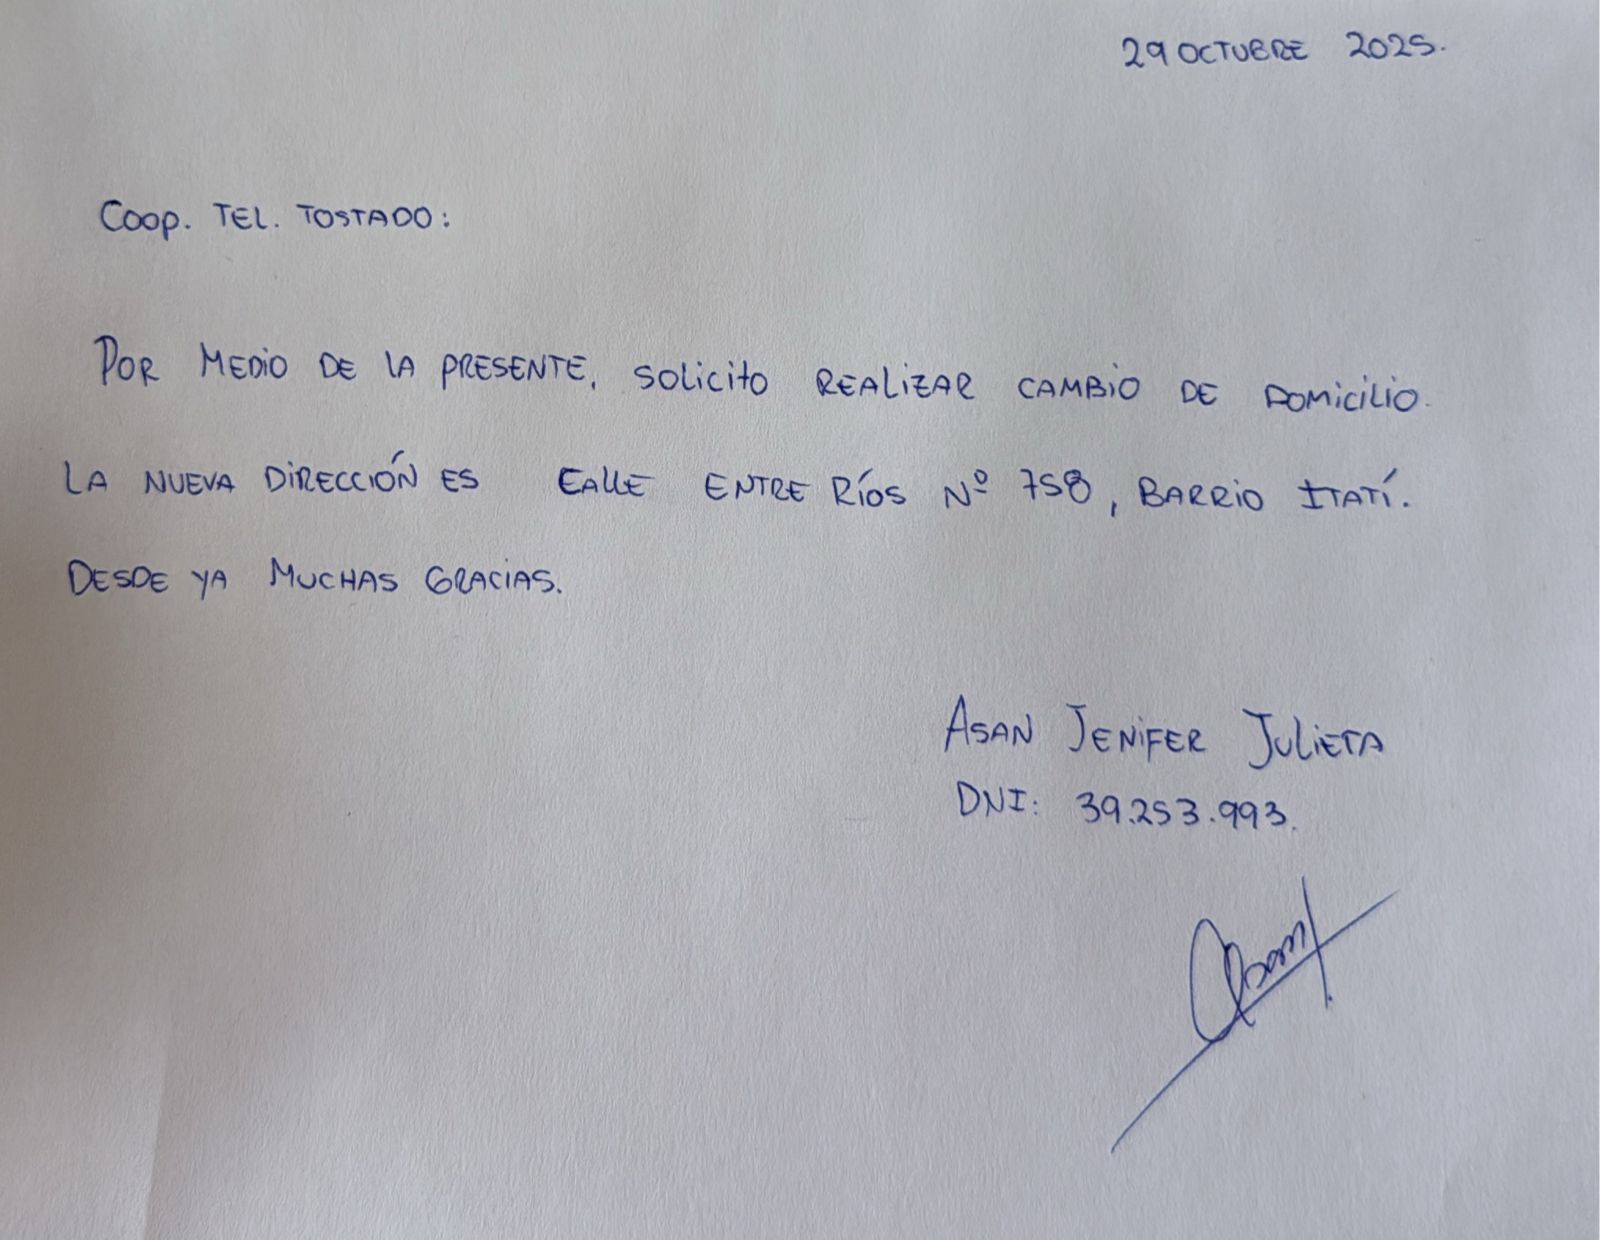 29 OCTUBRE 2025.
Coop. TEL. TOSTADO:
POR MEDIO DE LA PRESENTE, SOLICITO REALIZAR CAMBIO DE DOMICILIO.
LA NUEVA DIRECCIÓN ES CALLE ENTRE RÍOS Nº 758, BARRIO ITATÍ.
DESDE YA MUCHAS GRACIAS.
ASAN JENIFER JULIETA
DNI: 39.253.993.
Asan